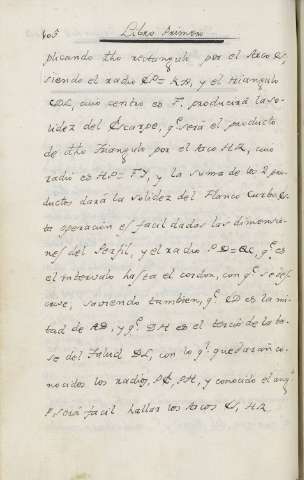 105 Libro Primero
plicando dho rectangulo por el Arco
siendo el radio y el triangulo
cuio centro es F. producirá la so-
lidez del Escarpe, q.e será el producto
de dho Triangulo por el Arco HR, cuio
radio es y la suma de los 2 pro-
ductos dará la solidez del Flanco Curbo. Es-
ta operacion es facil dadas las dimensio-
nes del Perfil, y el radio q.e es
el intervalo hasta el cordon, con q.e se des-
crive, saviendo tambien, q.e es la mi-
tad de y q.e DH es el tercio de la ba-
se del Talud con lo q.e quedarán co-
nocidos los radios, y conocido el ang.o
F. será facil hallar los Arcos HR